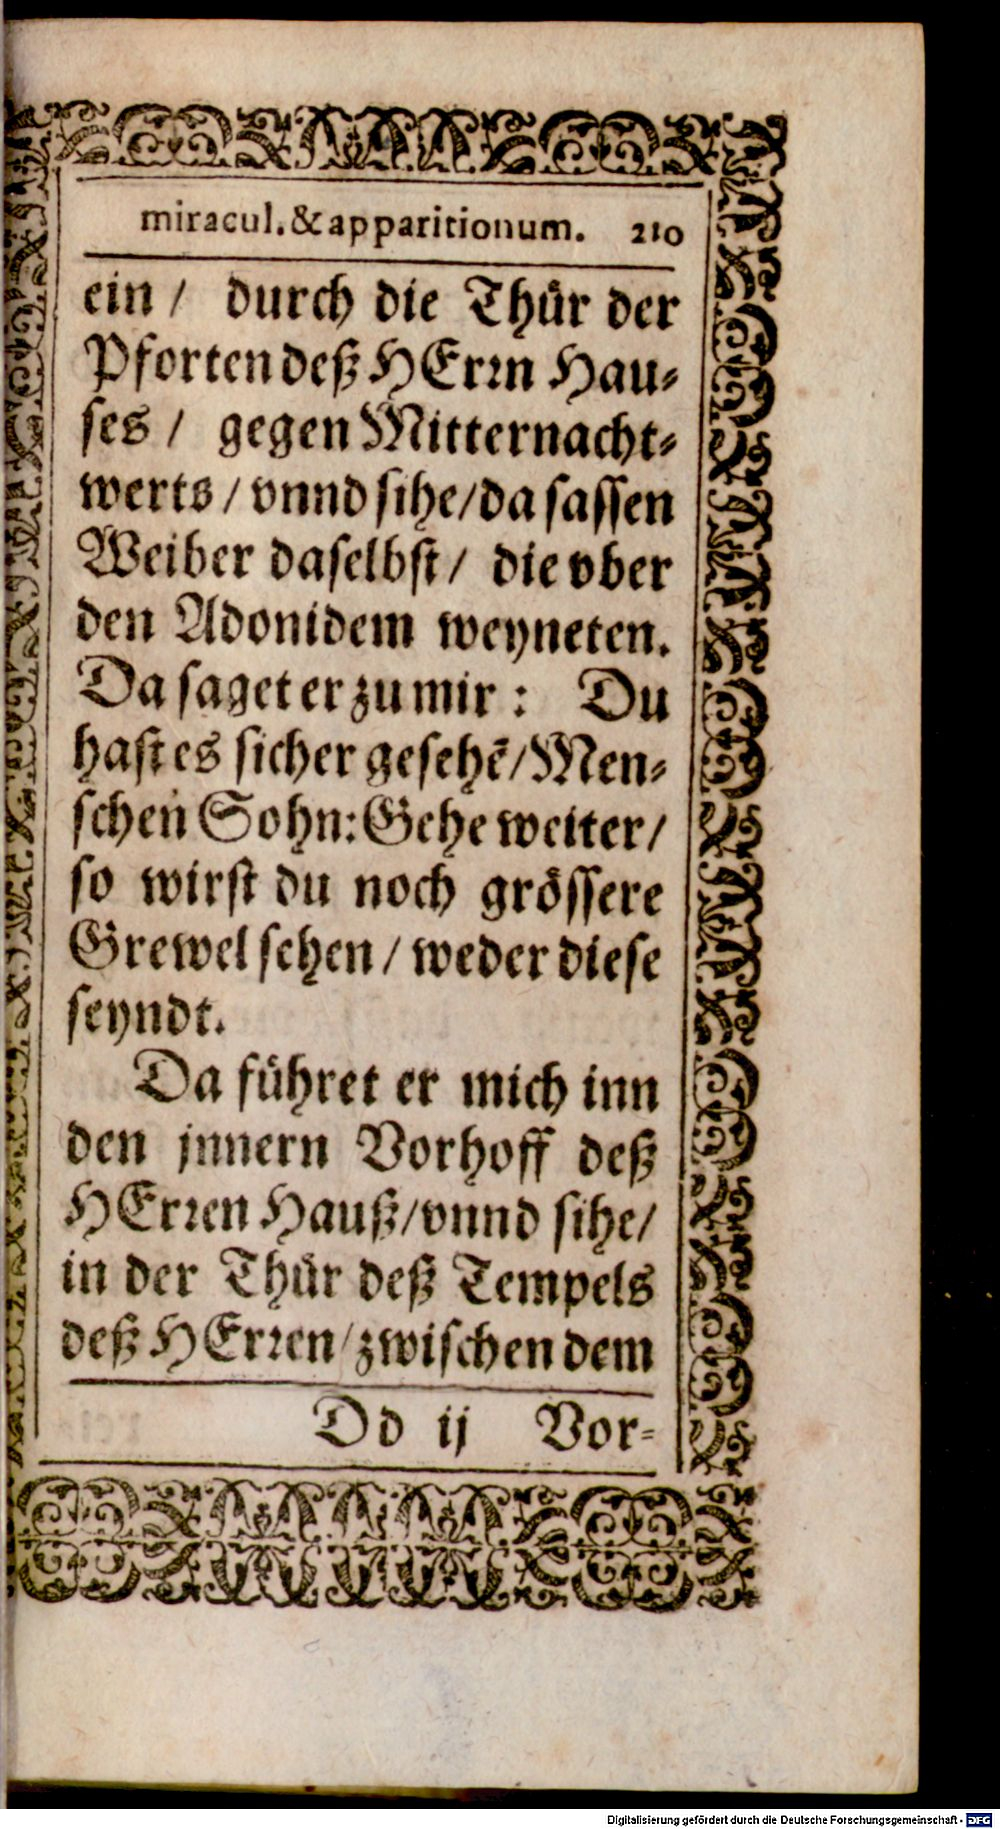 miracul. & apparitionum. 210
ein / durch die Thür der
Pforten deß HErꝛn Hau-
ses / gegen Mitternacht-
werts / vnnd sihe / da sassen
Weiber daselbst / die vber
den Adonidem weyneten.
Da saget er zu mir : Du
hast es sicher gesehẽ / Men-
schen Sohn: Gehe weiter /
so wirst du noch grössere
Grewel sehen / weder diese
seyndt.
Da führet er mich inn
den jnnern Vorhoff deß
HErꝛen Hauß / vnnd sihe /
in der Thür deß Tempels
deß HErꝛen / zwischen dem
Dd ij Vor-
Digitalisierung gefördert durch die Deutsche Forschungsgemeinschaft - DFG